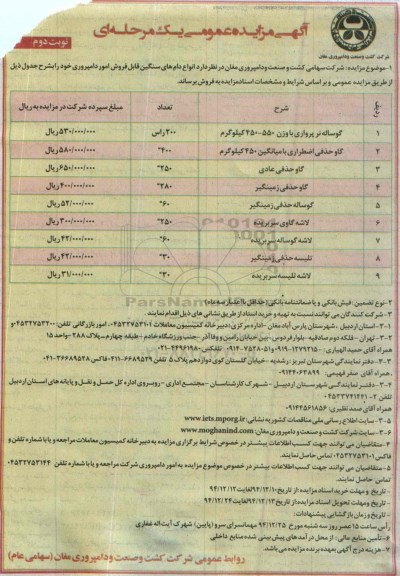 آگهی مزایده عمومی یک مرحله‌ای
نوبت دوم
شرکت کشت و صنعت و دامپروری مغان
۱-موضوع مزایده: شرکت سهامی کشت و صنعت و دامپروری مغان در نظر دارد انواع دام های سنگین قابل فروش امور دامپروری خود را بشرح جدول ذیل
از طریق مزایده عمومی و بر اساس شرایط و مشخصات اسناد مزایده به فروش برساند.
ردیف شرح تعداد مبلغ سپرده شرکت در مزایده به ریال
۱ گوساله نر پرواری با وزن ۵۵۰-۴۵۰ کیلوگرم ۲۰۰ راس ۵۳۰/۰۰۰/۰۰۰ ریال
۲ گاو حذفی اضطراری با میانگین ۴۵۰ کیلوگرم ۴۰۰" ۵۸۰/۰۰۰/۰۰۰ ریال
۳ گاو حذفی عادی ۲۵۰" ۶۵۰/۰۰۰/۰۰۰ ریال
۴ گاو حذفی زمینگیر ۲۸۰" ۴۰۰/۰۰۰/۰۰۰ ریال
۵ گوساله حذفی زمینگیر ۶۰" ۵۲/۰۰۰/۰۰۰ ریال
۶ لاشه گاوی سربریده ۲۵۰" ۳۰۰/۰۰۰/۰۰۰ ریال
۷ لاشه گوساله سربریده ۶۰" ۴۲/۰۰۰/۰۰۰ ریال
۸ تلیسه حذفی زمینگیر ۳۰" ۴۲/۰۰۰/۰۰۰ ریال
۹ لاشه تلیسه سربریده ۳۰" ۳۱/۰۰۰/۰۰۰ ریال
۲-نوع تضمین: فیش بانکی و یا ضمانتنامه بانکی (حداقل با اعتبار سه ماه)
۳-شرکت کنندگان می توانند نسبت به تهیه و خرید اسناد از طریق نشانی های ذیل اقدام نمایند.
۱-۳- استان اردبیل - شهرستان پارس آباد مغان - اداره مرکزی - دبیرخانه کمیسیون معاملات ۰۴۵۳۲۷۵۳۱۰۱- امور بازرگانی تلفن: ۰۴۵۳۲۷۵۳۲۰۰ و
۲-۳- تهران - فلکه دوم صادقیه - بلوار فردوس - بین خیابان رامین و وفا آذر - جنب ورزشگاه خادم - طبقه چهارم - پلاک ۲۸۸ - واحد ۱۵
همراه آقای حمید الهیاری:
۳-۳- دفتر نمایندگی شهرستان تبریز: رشدیه - خیابان گلستان کوی دوازدهم پلاک ۵ تلفن ۶۶۸۹۵۲۹-۰۴۱۱ فاکس ۳۶۶۸۹۵۲۸-۰۴۱
همراه آقای صفر فهیمی: ۰۹۱۴۴۰۶۳۸۹۹
۴-۳- دفتر نمایندگی شهرستان اردبیل - شهرک کارشناسان - مجتمع اداری - روبروی اداره کل حمل و نقل و پایانه های استان اردبیل
تلفن ۲-۰۴۵۳۳۷۴۱۲۲۱
همراه آقای صمد نظیری: ۰۹۱۴۴۵۶۱۸۵۶
۵-۳- سایت اطلاع رسانی ملی مناقصات کشور به نشانی: www.iets.mporg.ir
۶-۳- سایت شرکت کشت و صنعت و دامپروری مغان: www.moghanind.com
۴-متقاضیان می توانند جهت کسب اطلاعات بیشتر در خصوص شرایط برگزاری مزایده به دبیرخانه کمیسیون معاملات مراجعه و یا با شماره تلفن و
فاکس ۰۴۵۳۲۷۵۳۱۰۱ تماس حاصل نمایند.
۵-متقاضیان می توانند جهت کسب اطلاعات بیشتر در خصوص موضوع مزایده به امور دامپروری شرکت مراجعه و یا با شماره تلفن ۰۴۵۳۲۷۵۳۱۴۴ تماس
حاصل نمایند.
- تاریخ و مهلت خرید اسناد مزایده: از تاریخ ۹۴/۱۲/۱۰ لغایت ۹۴/۱۲/۱۲
- تاریخ و مهلت تحویل اسناد مزایده: از تاریخ ۹۴/۱۲/۱۳ لغایت ۹۴/۱۲/۲۴
- تاریخ و زمان بازگشایی پیشنهادات:
راس ساعت ۱۵ عصر روز سه شنبه مورخ ۹۴/۱۲/۲۵ مهمانسرای سرو (پایین) شهرک آیت اله غفاری
۶- تأمین منابع مالی: از محل درآمدهای پیش بینی شده منابع داخلی
۷- هزینه درج آگهی بعهده برنده مزایده می باشد.
روابط عمومی شرکت کشت و صنعت و دامپروری مغان (سهامی عام)